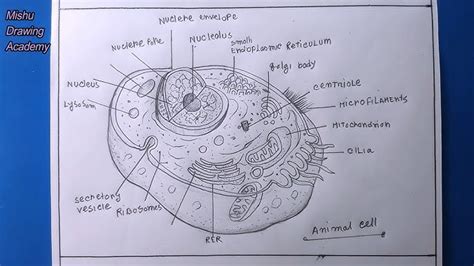 Mishu
Drawing
Academy
Nuclere envelope
Nuclere Pore
Nucleolus
Smooth
Endoplasmic Reticulum
Golgi body
Nucleus
Lysosom
centriole
microfilaments
Mitochondrion
cilia
secretory
vesicle
Ribosomes
RER
Animal cell